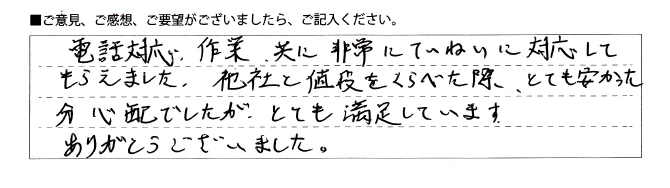 ■ご意見、ご感想、ご要望がございましたら、ご記入ください。
電話対応、作業、共に非常にていねいに対応して
もらえました。他社と値段をくらべた際、とても安かった
分心配でしたが、とても満足しています
ありがとうございました。